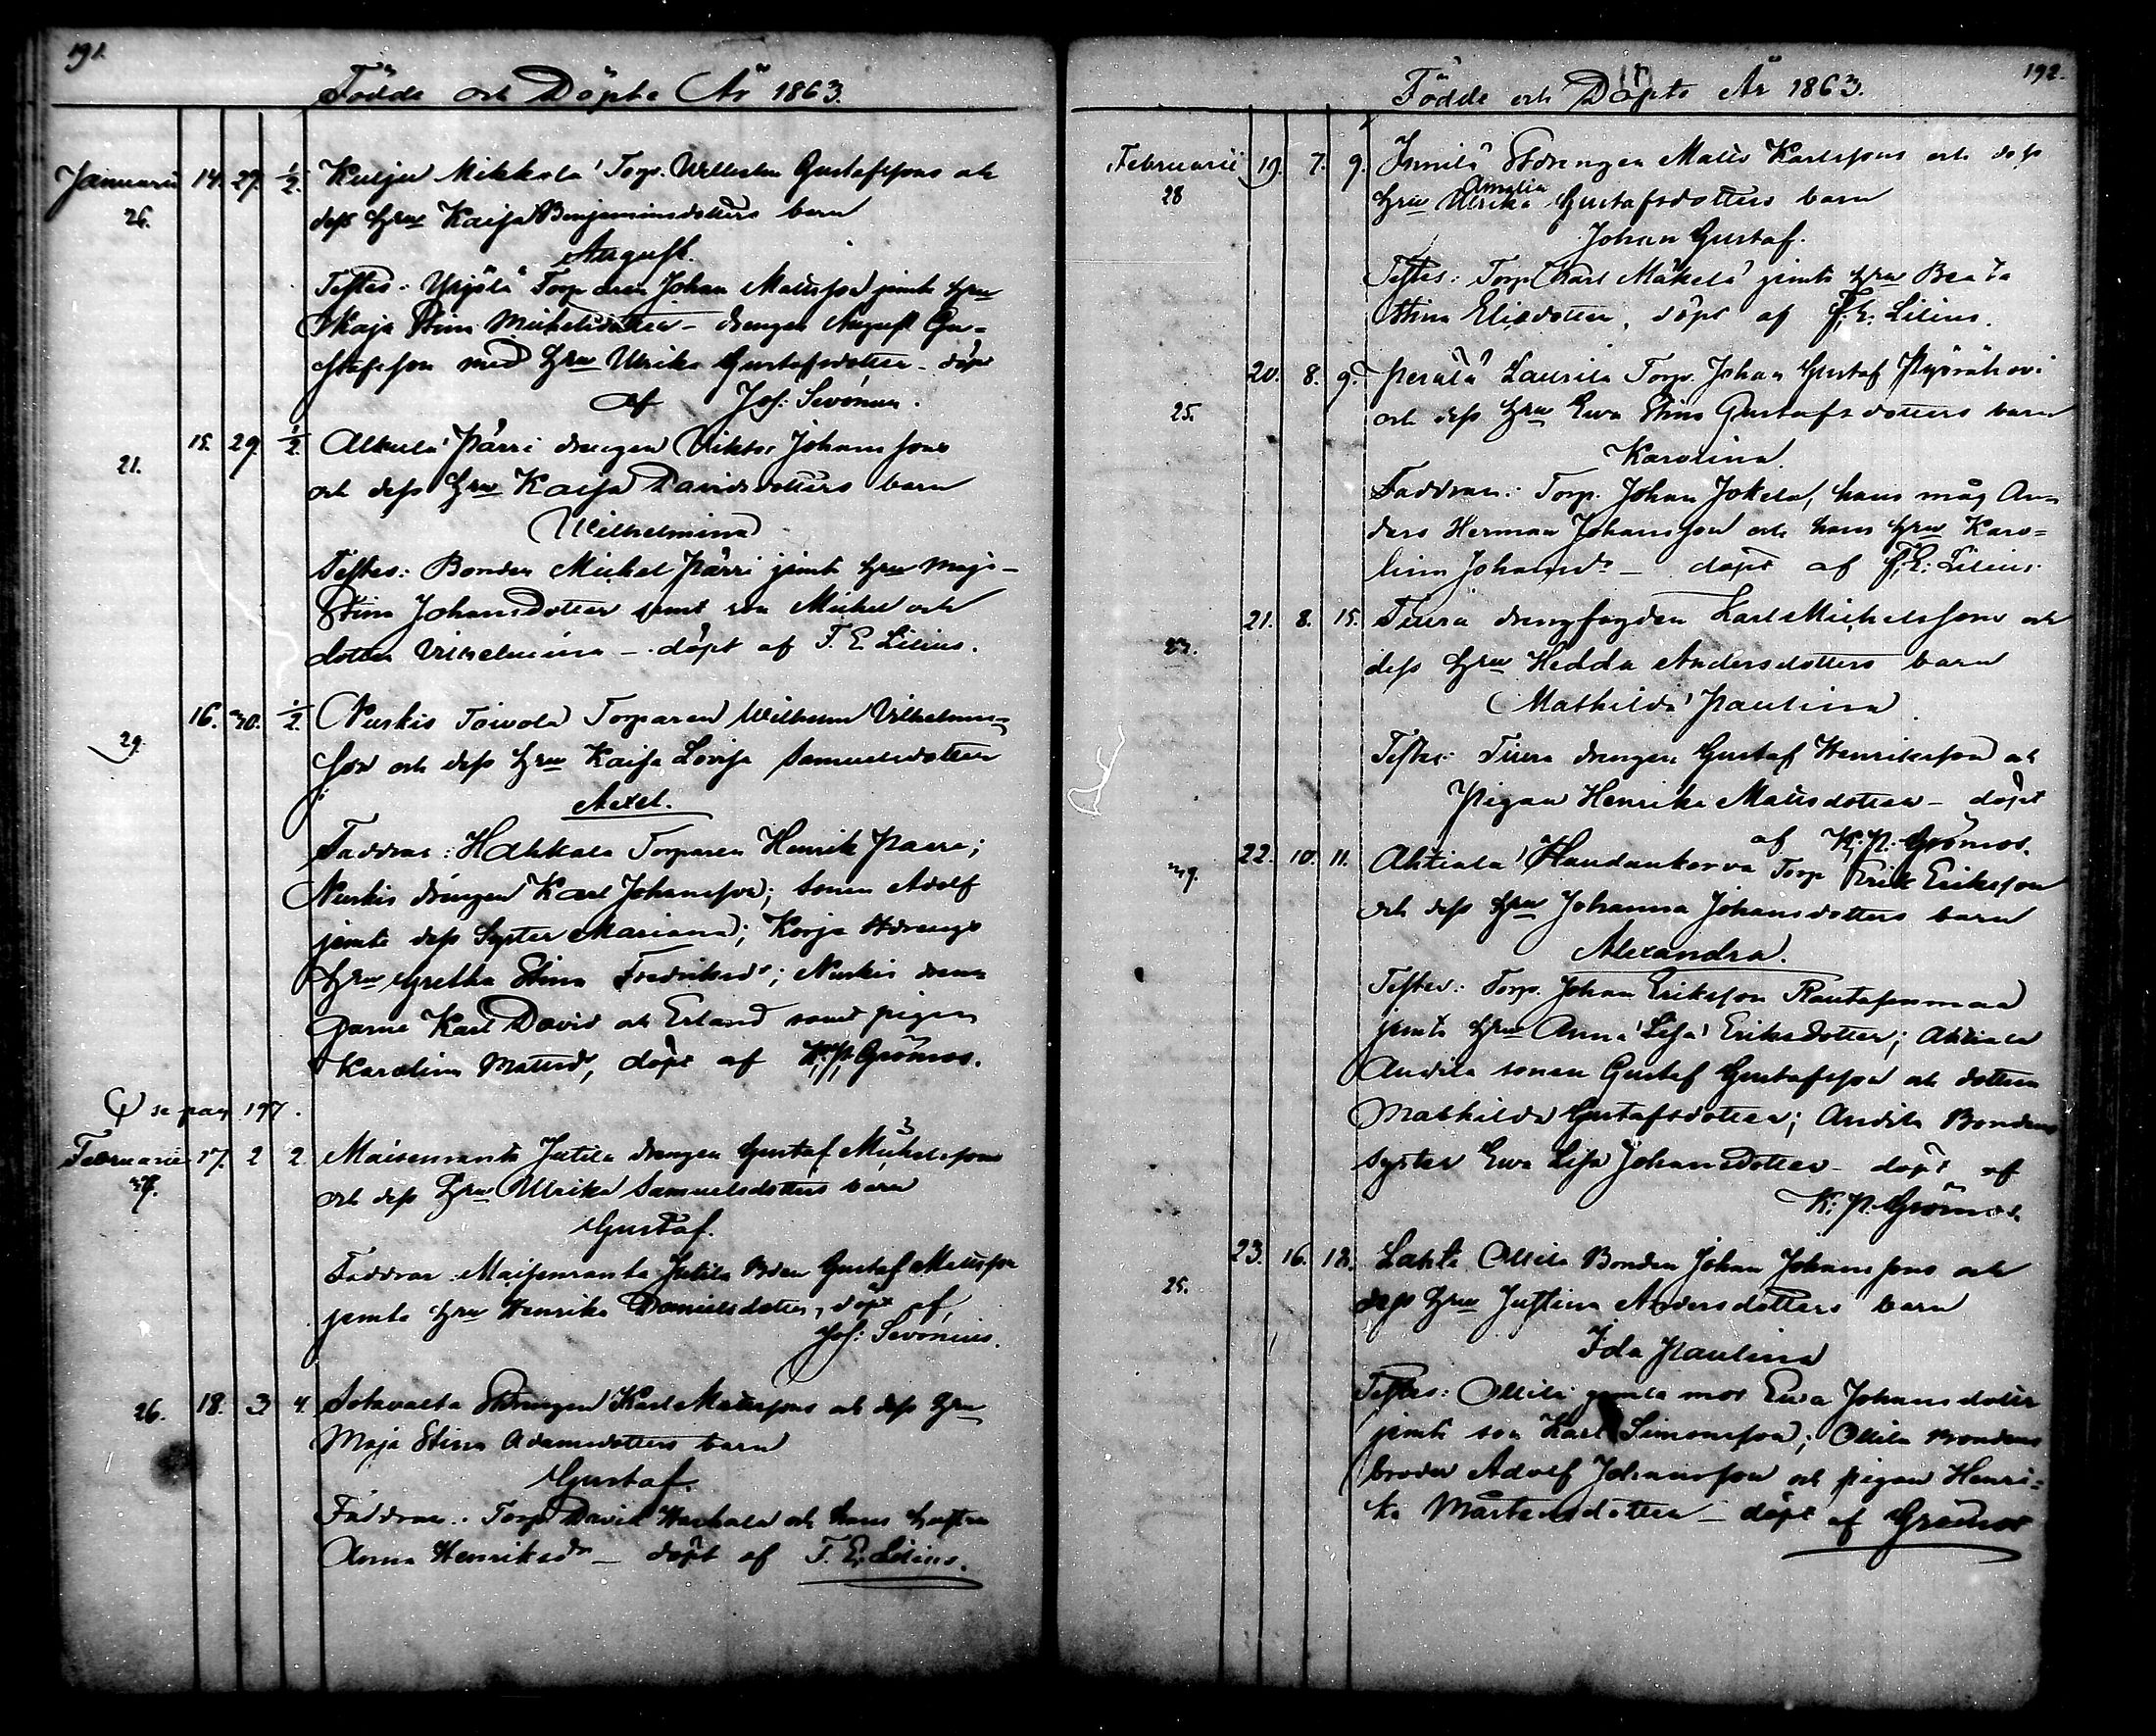 191.
Födde och Döpte År 1863.
Januarii 14. 29. 1/2. Mikkola Torp. Gustafssons och
26. dess hru Kaisa Benjaminsdotters barn
August.
Testes. Yrjölä Torparen Johan Mattsson jemte hru
Maja Stina Michelsdotter – drengen August Gu-
stafsson med hru Ulrika Gustafsdotter – döpt
af Jos: Sevonius.
15. 29. 1/2 Alkula Pärri drengen Viktor Johanssons
21. och dess hru Kaisa Davidsdotters barn
Wilhelmina
Testes: Bonden Michel Pärri jemte hru Maja
Stina Johansdotter samt son Michel och
dotter Vilhelmina – döpt af F. E. Lilius.
16. 30. 1/2 Nurkis Toivola Torparen Wilhelm Vilhelms-
29. son och dess hru Kaisa Lovisa Samuelsdotter
Axel.
Faddrar: Hakkala Torparen Henrik Paeri;
Nurkis drengen Karl Johansson; sonen Adolf
jemte dess Syster Mariana; Korja Stdrengs
hru Gretha Stina Fredriksdr; Nurkis dren-
garne Karl David och Erland samt pigan
Karolina Mattsdr, döpt af K. P. Grönroos.
se pag 197.
Februarii 17. 2 2. Maisenranta Jutila drengen Gustaf Michelssons
och dess hru Ulrika Samuelsdotters barn
Gustaf.
Faddrar. Maisenranta Jutila Bden Gustaf Mattsson
jemte hru Henrika Danielsdotter, döpt af,
Jos: Sevonius.
26. 18. 3. 4. Sotavalta Stdrengen Karl Mattssons och dess hru
Maja Stina Adamsdotters barn
Gustaf.
Faddrar: Torp David och hans hustru
Anna Henriksdr – döpt af F. E. Lilius.
192.
Födde och Döpte År 1863.
Februarii 19. 7. 9. Junnila Stdrengen Matts Karlssons och dess
28 hru Ulrika Amalia Gustafsdotters barn
Johan Gustaf.
Testes: Torp Karl Mäkelä jemte hru Beata
Stina Eliedotter, döpt af F. E. Lilius.
20. 8. 9. Perälä Laurila Torp. Johan Gustaf Pyöräkovi
25. och dess hru Ewa Stina Gustafsdotters barn
Karolina.
Faddrar: Torp. Johan Jokela, hans måg An-
ders Herman Johansson och hans hru Karo-
lina Johansdr – döpt af F. E. Lilius.
21. 8. 15. Tiura drengfogden Karl Michelssons och
23. dess hru Hedda Andersdotters barn
Mathilda Paulina
Testes: Tiura drengen Gustaf Henriksson och
Pigan Henrika Mattsdotter – döpt
af K. P. Grönroos.
22. 10. 11. Ahtiala Haudankorva Torp Erik Eriksson
och dess hru Johanna Johansdotters barn
Alexandra.
Testes: Torp. Johan Eriksson Rautasenmaa
jemte hru Anna Lisa Eriksdotter; Ahtiala
Andila sonen Gustaf Gustafsson och dottern
Mathilda Gustafsdotter; Andila Bondens
syster Ewa Lisa Johansdotter – döpt af
K. P. Grönroos.
23. 16. 18. Lahti Ollila Bonden Johan Johanssons och
25. dess hru Justina Andersdotters barn
Ida Paulina
Testes: Ollila gamla mor Ewa Johansdotter
jemte son Karl Simonsson; Ollila Bondens
broder Adolf Johansson och pigan Henri-
ka Mårtensdotter – döpt af Grönroos